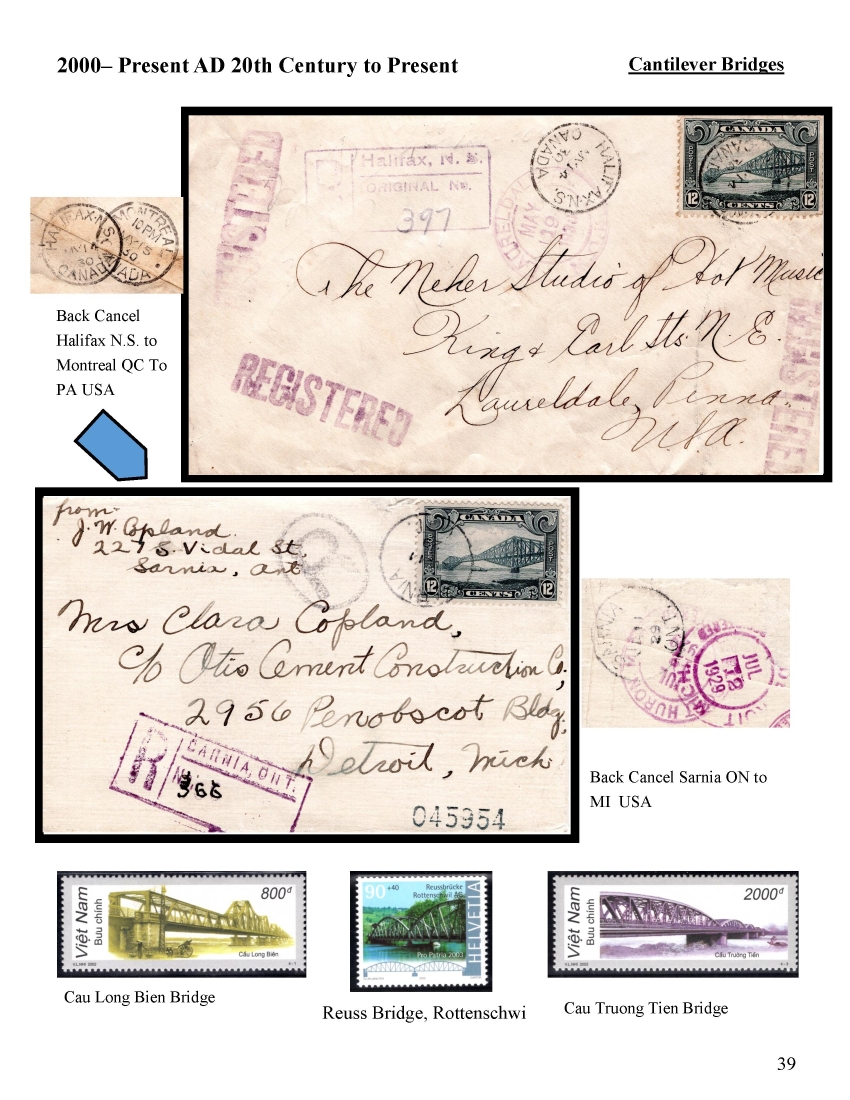 2000– Present AD 20th Century to Present
Cantilever Bridges
REGISTERED
Halifax, N. S.
ORIGINAL No.
397
HALIFAX·N.S.
CANADA
CANADA
POSTES POST
12 CENTS 12
MAY
The Neher Studio of Hot Music
King & Earl Sts. N. E.
Laureldale, Penna.
U.S.A.
REGISTERED
REGISTERED
HALIFAX·N.S.
CANADA
MONTREAL
10 PM
30
CANADA
Back Cancel
Halifax N.S. to
Montreal QC To
PA USA
from
J. W. Copland.
227 S. Vidal St,
Sarnia, Ont
R
CANADA
12 CENTS 12
Mrs Clara Copland,
c/o Otis Cement Construction Co,
2956 Penobscot Bldg,
Detroit, Mich
R
SARNIA, ONT.
No.
366
045954
SARNIA
ONT
29
JUL
12
1929
HURON
MICH
Back Cancel Sarnia ON to
MI USA
Việt Nam
Bưu chính
800đ
Cầu Long Biên
90 +40
Reussbrücke
Rottenschwil AG
Pro Patria 2003
HELVETIA
Việt Nam
Bưu chính
2000đ
Cầu Trường Tiền
Cau Long Bien Bridge
Reuss Bridge, Rottenschwi
Cau Truong Tien Bridge
39